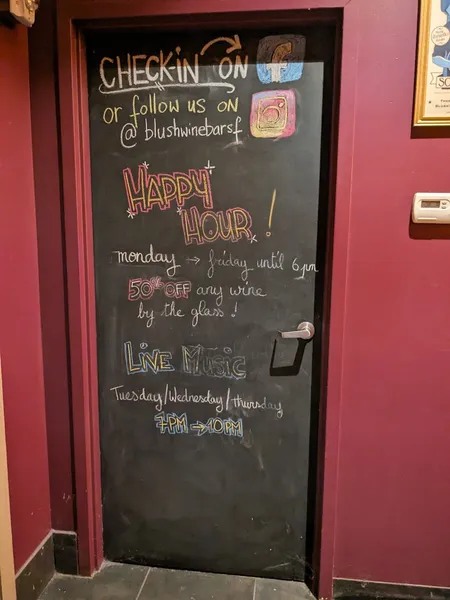 CHECK-IN ON f
or follow us on
@ blushwinebarsf
HAPPY
HOUR !
monday → friday until 6pm
50% OFF any wine
by the glass !
LIVE MUSIC
Tuesday/Wednesday/thursday
7PM → 10PM